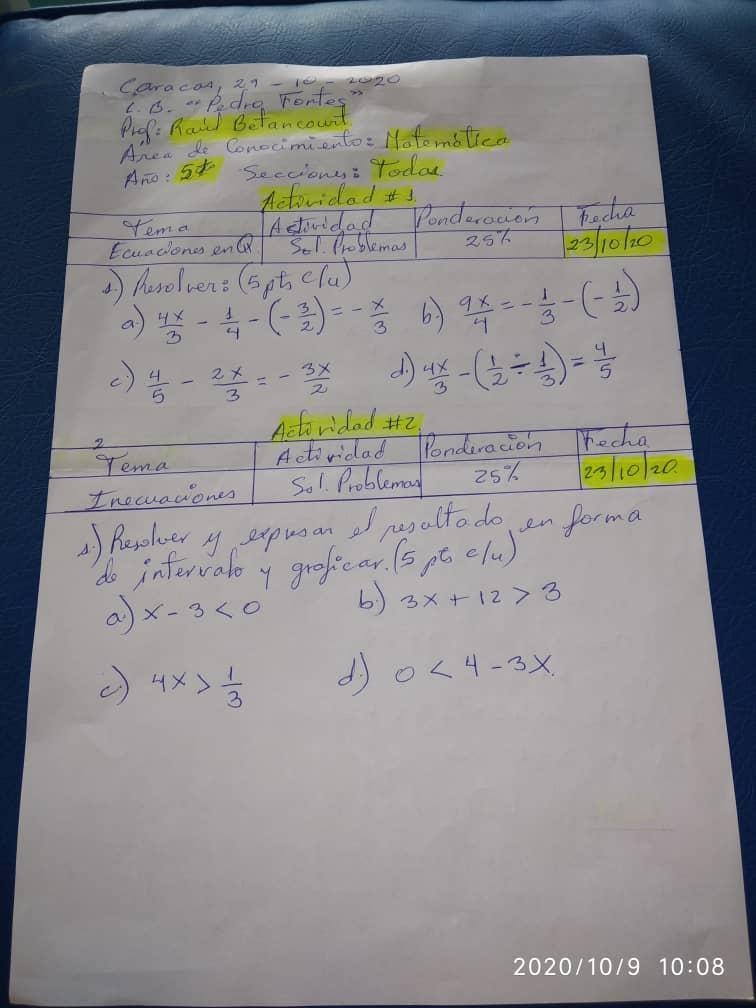 Caracas, 29 - 10 - 2020
L. B. "Pedro Fontes"
Prof: Raúl Betancourt
Área de Conocimiento: Matemática
Año: 5to Secciones: Todas
Actividad #1
Tema Actividad Ponderación Fecha
Ecuaciones en Q Sol. Problemas 25% 23/10/20
1.) Resolver: (5 pts c/u)
a) 4x/3 - 1/4 - (-3/2) = -x/3 b) 9x/4 = -1/3 - (-1/2)
c) 4/5 - 2x/3 = -3x/2 d) 4x/3 - (1/2 ÷ 1/3) = 4/5
Actividad #2
2
Tema Actividad Ponderación Fecha
Inecuaciones Sol. Problemas 25% 23/10/20.
1.) Resolver y expresar el resultado en forma
de intervalo y graficar. (5 pts c/u)
a) x - 3 < 0 b) 3x + 12 > 3
c) 4x > 1/3 d) 0 < 4 - 3x.
2020/10/9 10:08